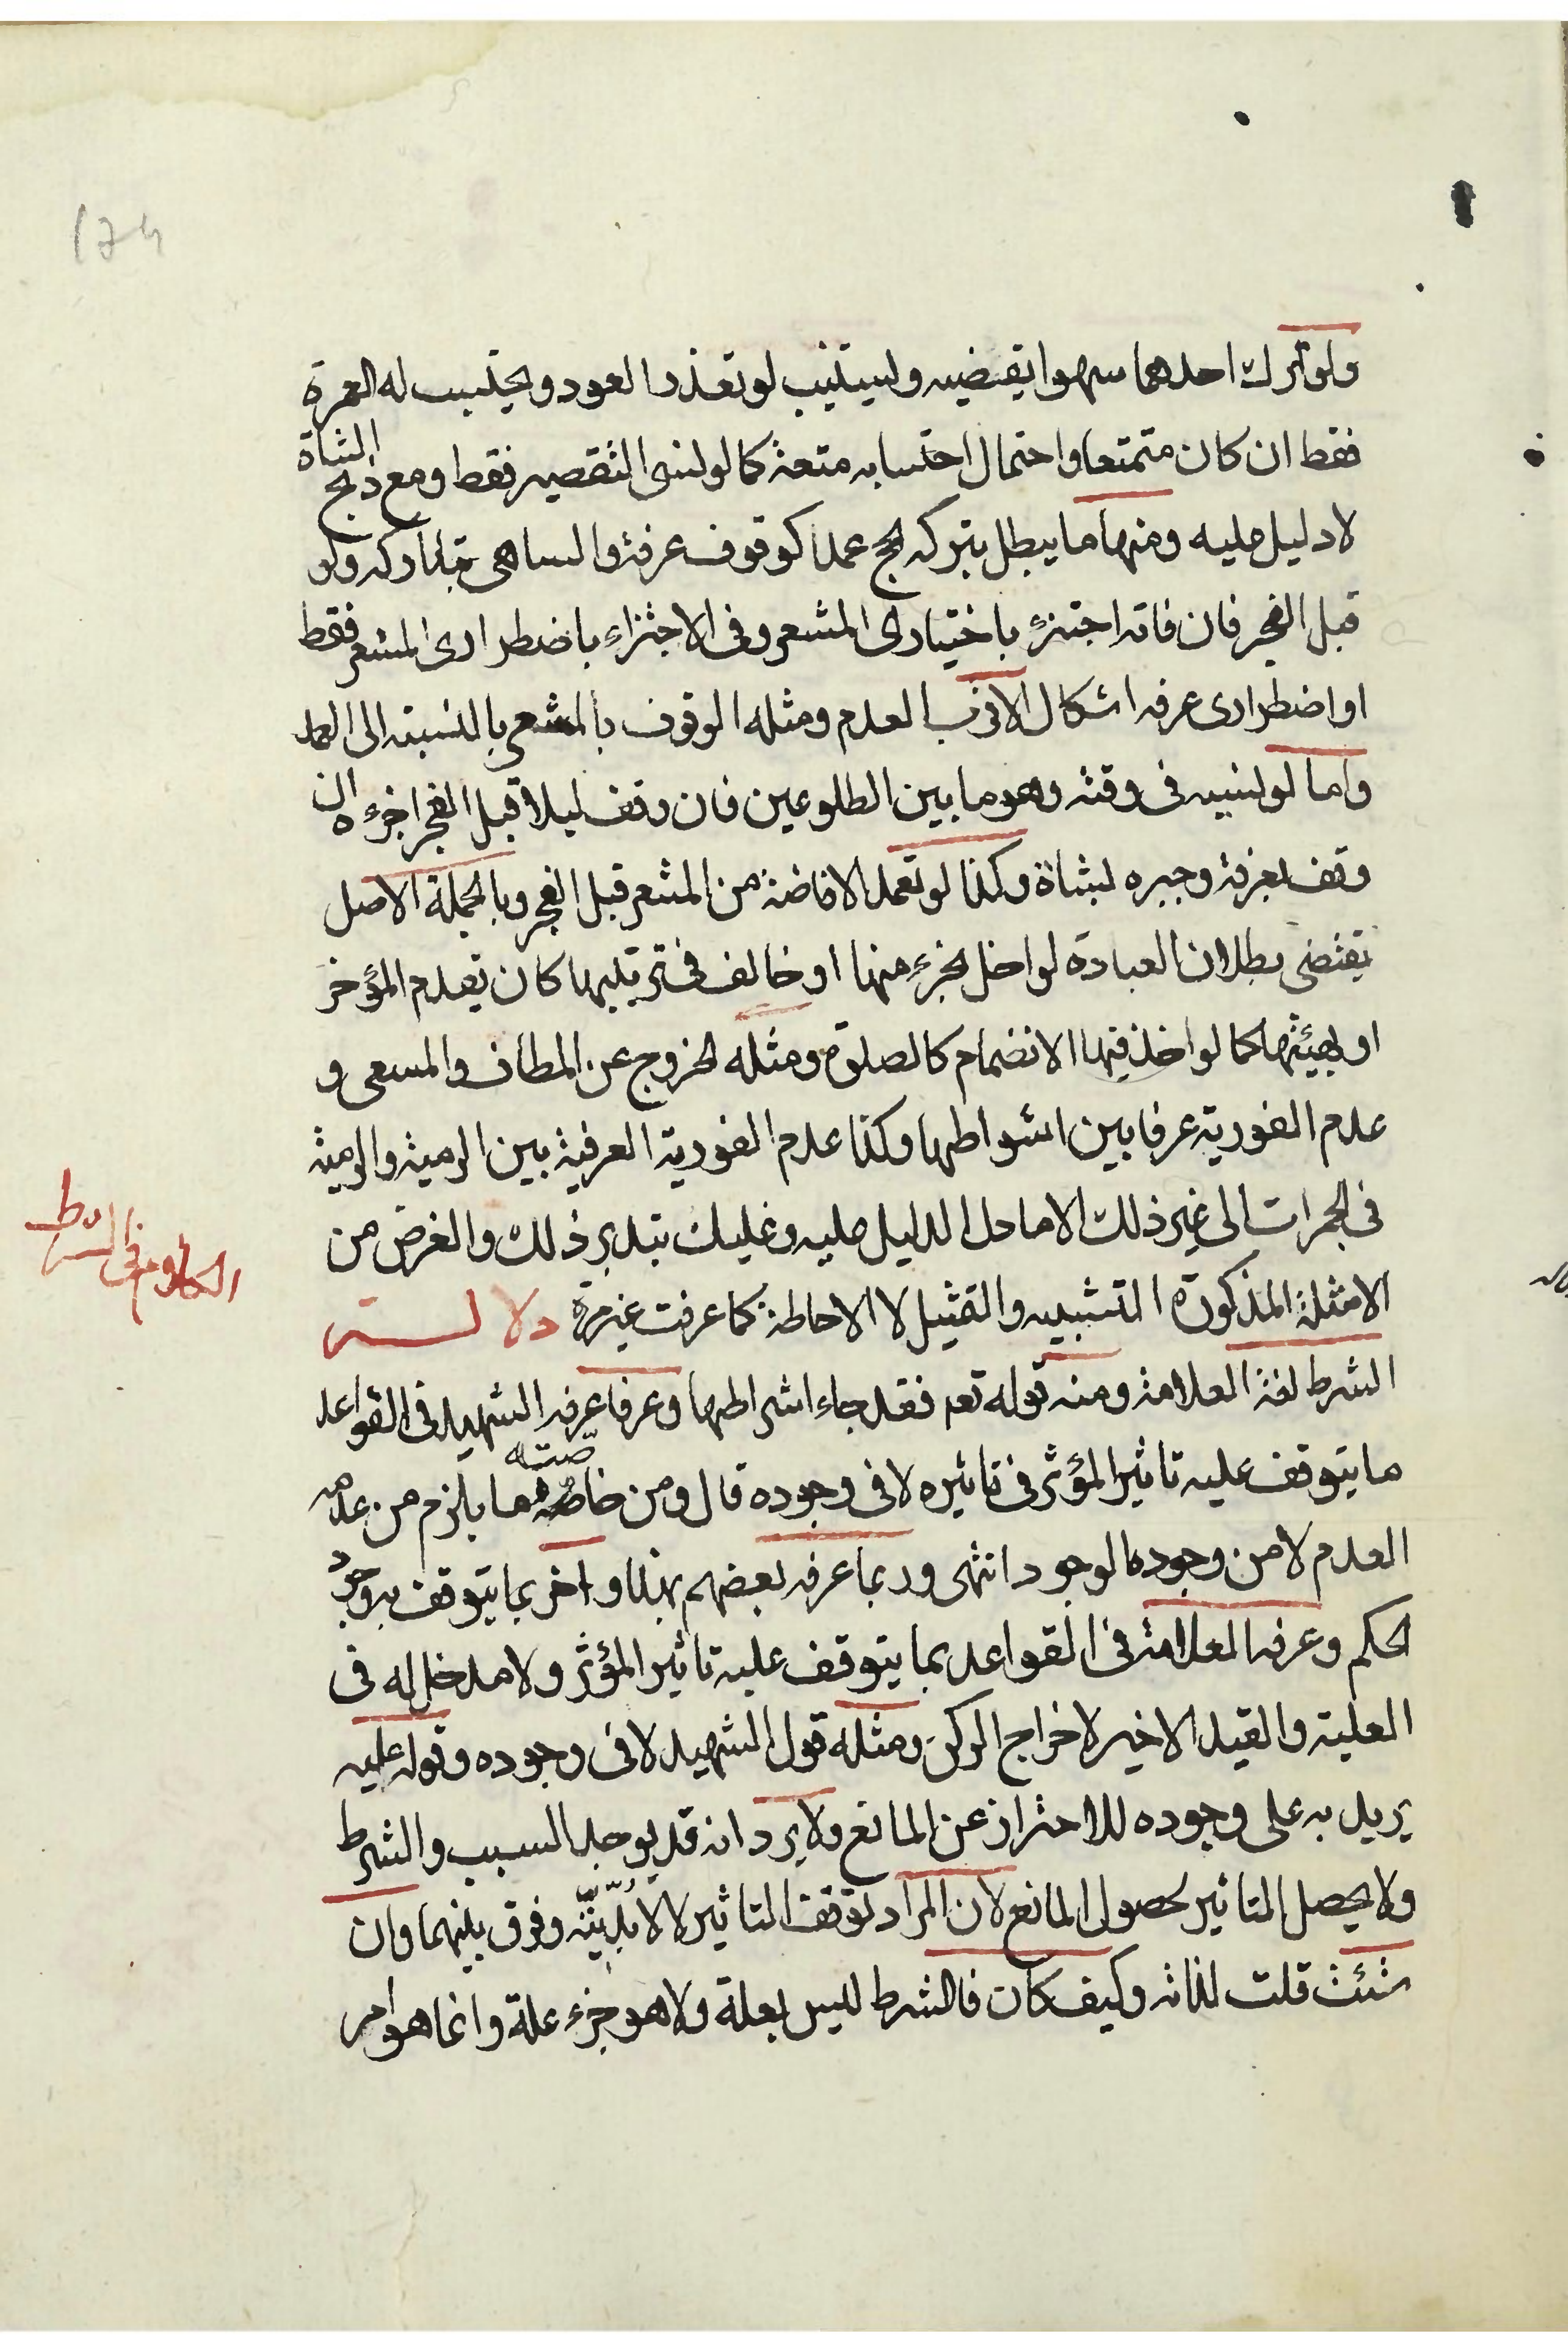 ولو ترك احدهما سهوا يقضيه ويستنيب لو تعذر العود ويحتسب له العمرة
فقط ان كان متمتعا واحتمال احتسابه متعة كما لو نسى التقصير فقط ومع ذبح الشاة
لا دليل عليه ومنها ما يبطل بتركه الحج عمدا كوقوف عرفة والساهى يتداركه ولو
قبل الفجر فان فاته اجتزئ باختيارى المشعر وفى الاجتزاء باضطرارى المشعر فقط
او اضطرارى عرفه اشكال الاقرب العدم ومثله الوقوف بالمشعر بالنسبته الى العمد
واما لو نسيه فى وقته وهو ما بين الطلوعين فان وقف ليلا قبل الفجر اجزءه ان
وقف بعرفة وجبره بشاة وكذا لو تعمد الافاضة من المشعر قبل الفجر وبالجملة الاصل
يقتضى بطلان العبادة لو اخل بجزء منها او خالف فى ترتيبها كان تعدم المؤخر
او بهيئتها كما لو اخذ فيها الانضمام كالصلوة ومثله الخروج عن المطاف والمسعى و
عدم الفورية عرفا بين اشواطها وكذا عدم الفورية العرفية بين الرمية والرمية
فى الجمرات الى غير ذلك الا ما دل الدليل عليه وعليك بتدبر ذلك والغرض من
الامثلة المذكورة التشبيه والتمثيل لا الاحاطة كما عرفت غير مرة
الكلام فى الشرط
الشرط لغة العلامة ومنه قوله تعم فقد جاء اشراطها وعرفا عرفه الشهيد فى القواعد
ما يتوقف عليه تاثير المؤثر فى تاثيره لا فى وجوده قال ومن خاصته ما يلزم من عدمه
العدم لا من وجوده الوجود انتهى وربما عرفه بعضهم بهذا واخر بما يتوقف به وجود
الحكم وعرفه العلامة فى القواعد بما يتوقف عليه تاثير المؤثر ولا مدخل له فى
العلية والقيد الاخير لاخراج الركن ومثله قول الشهيد لا فى وجوده وقوله عليه
يريد به على وجوده للاحتراز عن المانع ولا يرد انه قد يوجد السبب والشرط
ولا يحصل التاثير لحصول المانع لان المراد توقف التاثير لا لابديّته وفرق بينهما وان
شئت قلت لذاته وكيف كان فالشرط ليس بعلة ولا هو جزء علة وانما هو امر